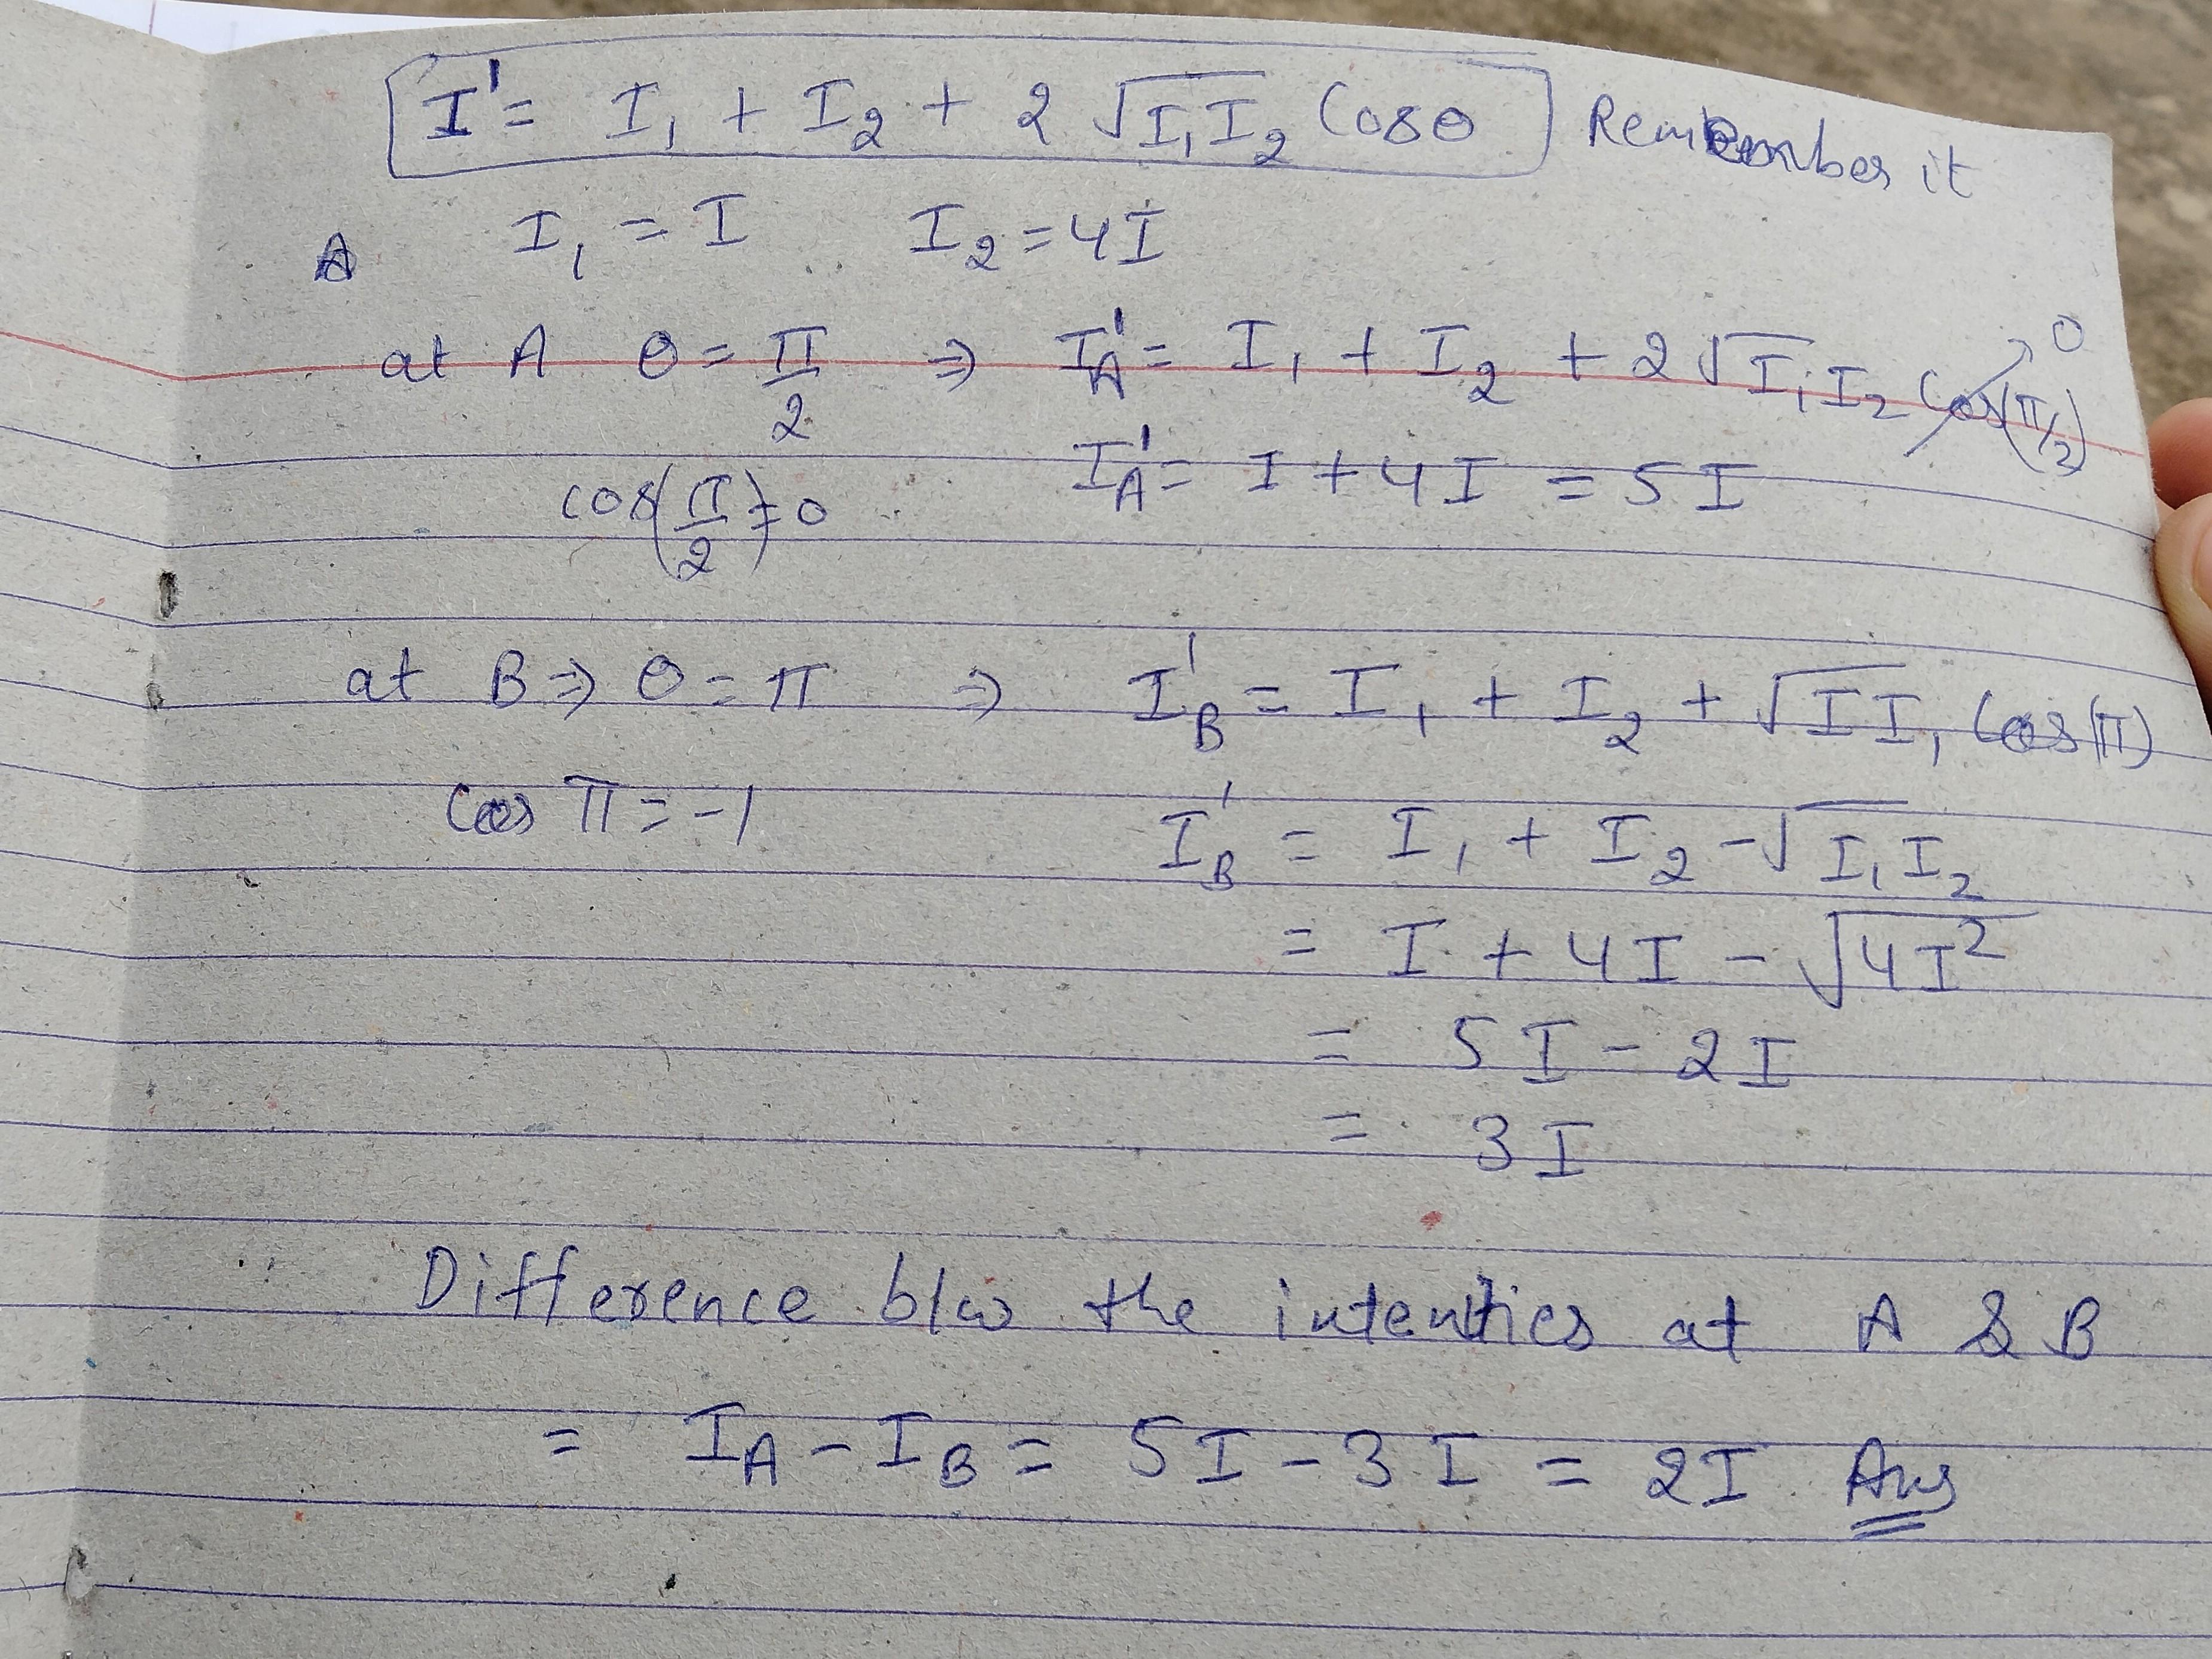 I' = I₁ + I₂ + 2 √I₁I₂ Cosθ Remember it
A I₁ = I I₂ = 4I
at A θ = π/2 ⇒ I'A = I₁ + I₂ + 2 √I₁I₂ Cos(π/2) ↗ 0
cos(π/2) = 0 I'A = I + 4I = 5I
at B ⇒ θ = π ⇒ I'B = I₁ + I₂ + √II₁ Cos(π)
Cos π = -1 I'B = I₁ + I₂ - √I₁I₂
= I + 4I - √4I²
= 5I - 2I
= 3I
Difference b/w the intenties at A & B
= IA - IB = 5I - 3I = 2I Ans